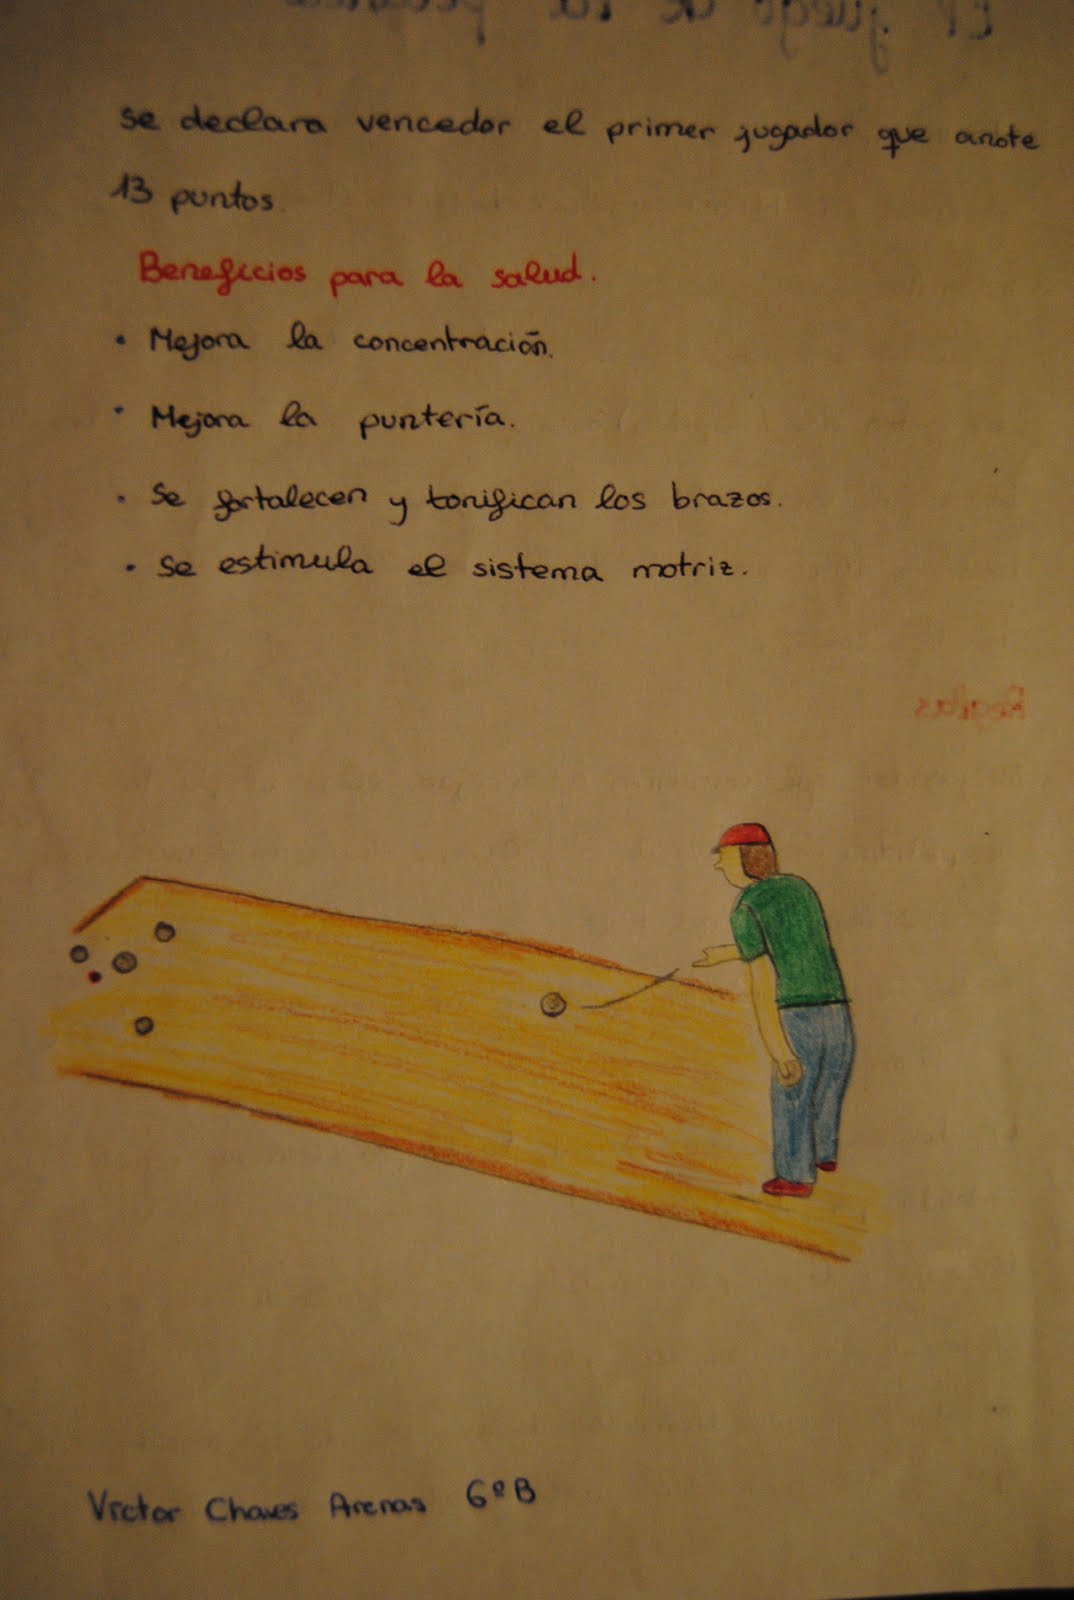 se declara vencedor el primer jugador que anote
13 puntos.
Beneficios para la salud.
• Mejora la concentración.
• Mejora la puntería.
• Se fortalecen y tonifican los brazos.
• Se estimula el sistema motriz.
Reglas
Víctor Chaves Arenas 6º B